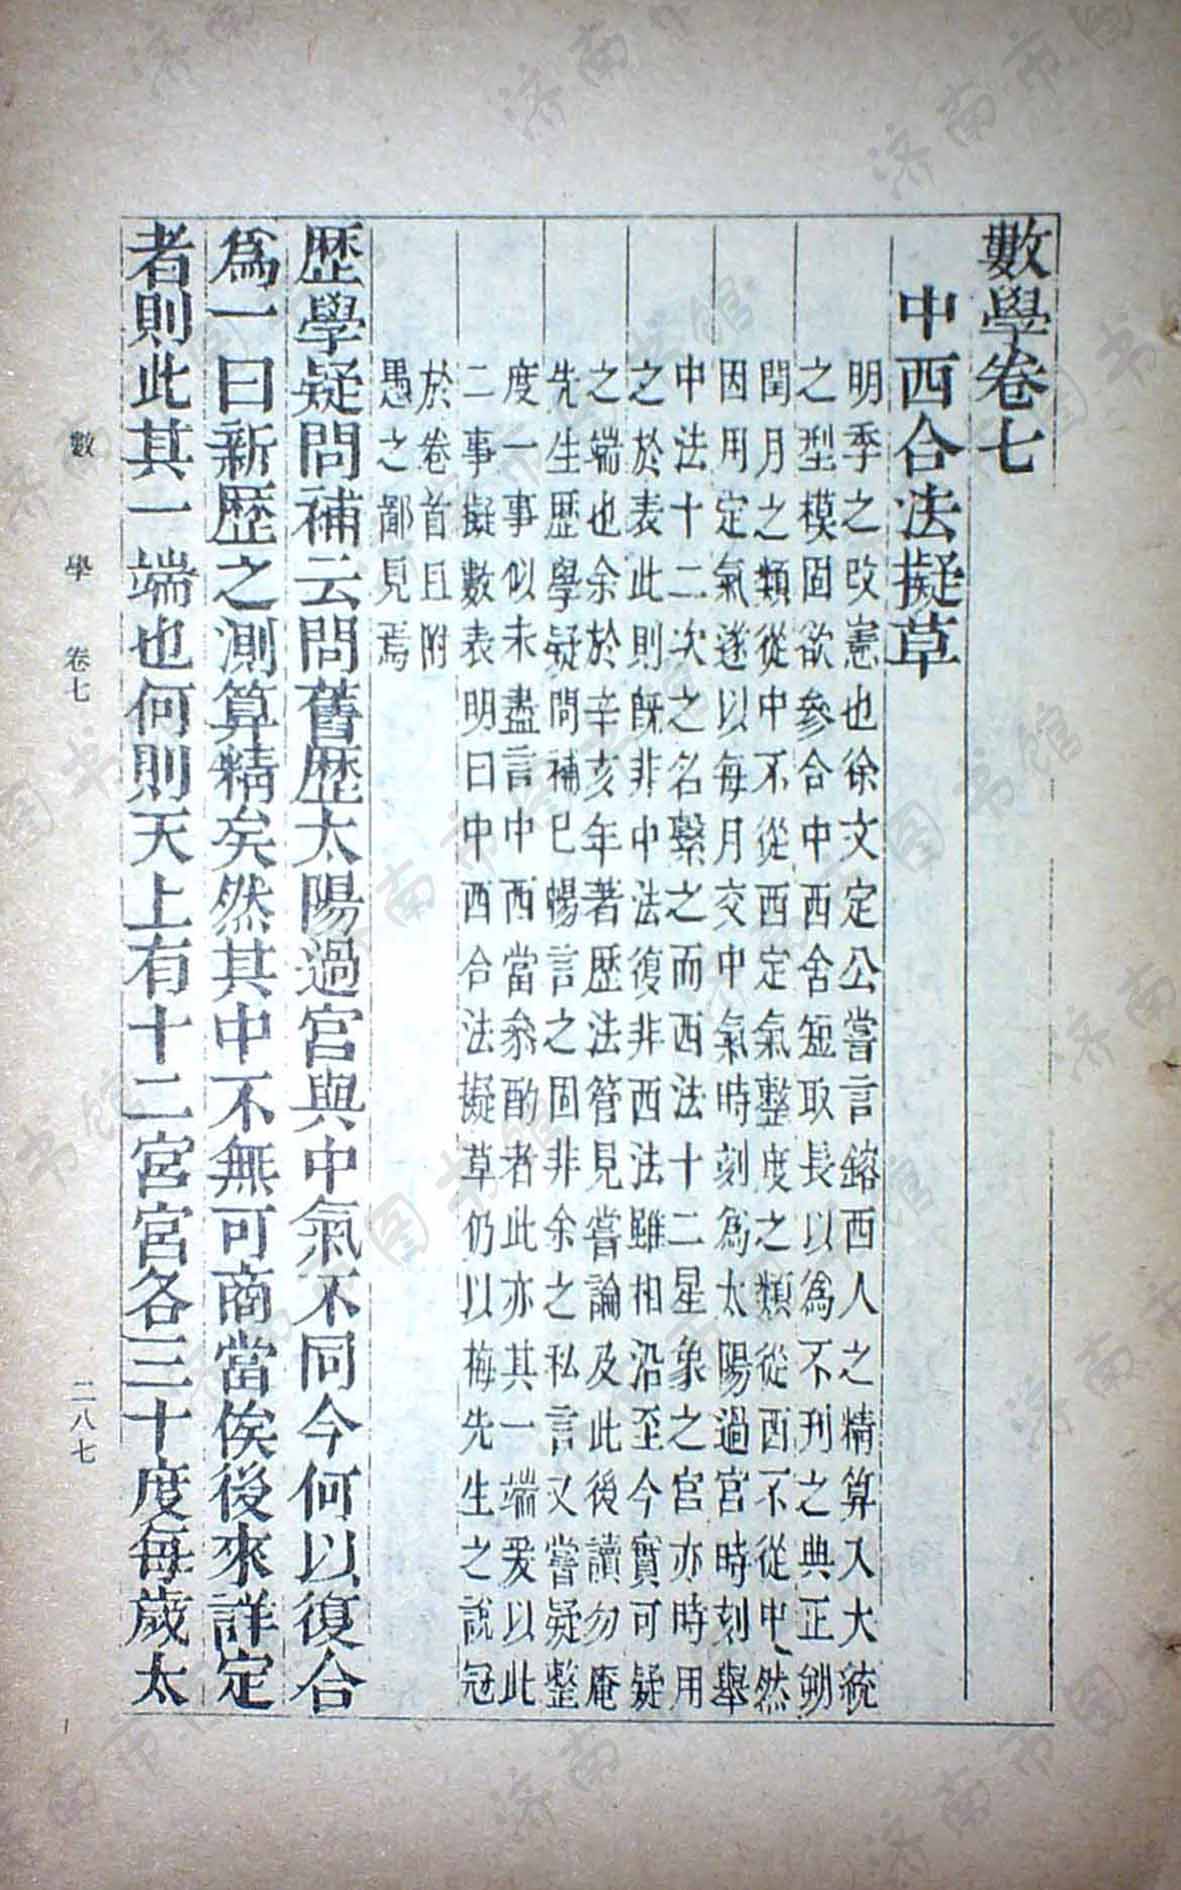 數學卷七
中西合法擬草
明季之改憲也徐文定公嘗言鎔西人之精算入大統
之型模固欲參合中西舍短取長以爲不刋之典正朔
閏月之類從中不從西定氣整度之類從西不從中然
因用定氣遂以每月交中氣時刻爲太陽過宮時刻舉
中法十二次之名繫之而西法十二星象之宮亦時用
之於表此則旣非中法復非西法雖相沿至今實可疑
之端也余於辛亥年著歷法管見嘗論及此後讀勿庵
先生歷學疑問補已暢言之固非余之私言又嘗疑整
度一事似未盡言中西當叅酌者此亦其一端爰以此
二事擬數表明曰中西合法擬草仍以梅先生之說冠
於卷首且附
愚之鄙見焉
歷學疑問補云問舊歷太陽過宮與中氣不同今何以復合
爲一曰新歷之測算精矣然其中不無可商當俟後來詳定
者則此其一端也何則天上有十二宮宮各三十度每歲太
數 學 卷七 二八七
济南市图书馆